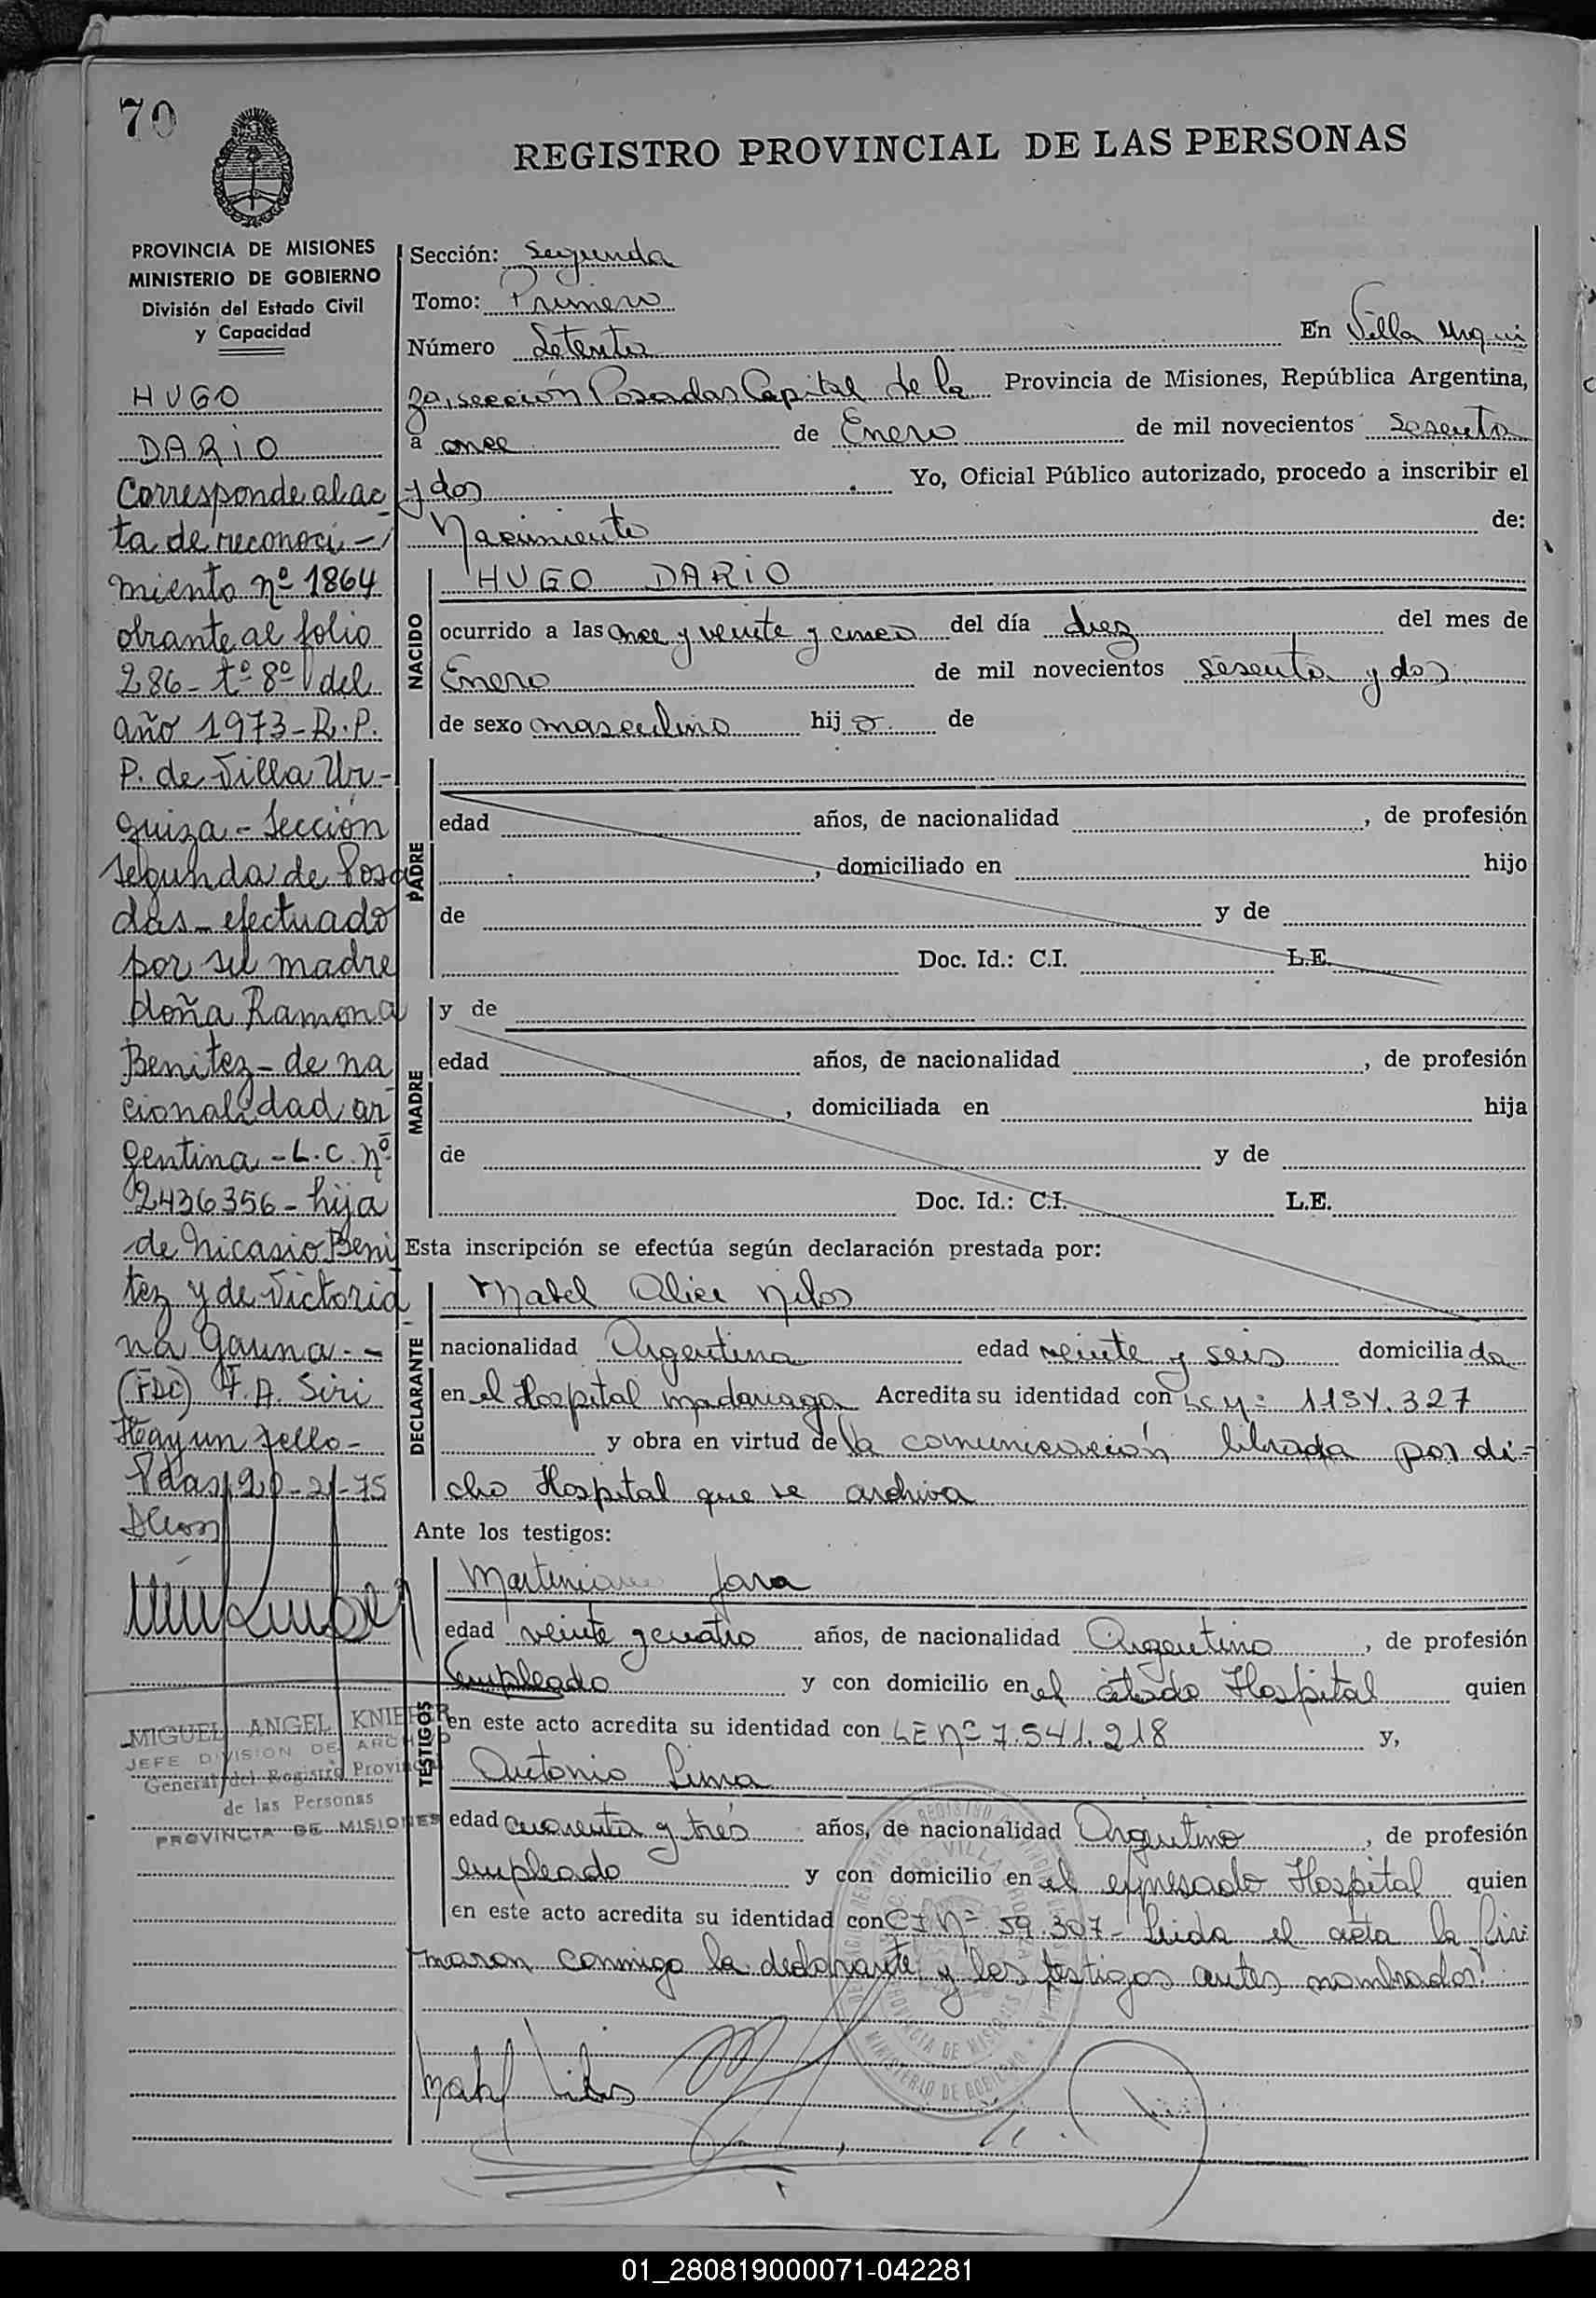 70
REGISTRO PROVINCIAL DE LAS PERSONAS
PROVINCIA DE MISIONES
MINISTERIO DE GOBIERNO
División del Estado Civil
y Capacidad
HUGO
DARIO
Corresponde al ac
ta de reconoci-
miento nº 1864
obrante al folio
286- tº 8º del
año 1973- R.P.
P. de Villa Ur-
quiza - Sección
segunda de Posa
das - efectuado
por su madre
doña Ramona
Benitez - de na
cionalidad ar
gentina - L.C. nº
2436356 - hija
de Nicasio Beni
tez y de Victoria
na Gauna --
(FDO) F.A. Siri
Hay un sello -
Pdas, 20-2-75
MIGUEL ANGEL KNIEPER
JEFE DIVISION DE ARCHIVO
General del Registro Provincial
de las Personas
PROVINCIA DE MISIONES
Sección: Segunda
Tomo: Primero
Número Setenta En Villa Urqui
za, sección Posadas Capital de la Provincia de Misiones, República Argentina,
a once de Enero de mil novecientos sesenta
y dos. Yo, Oficial Público autorizado, procedo a inscribir el
Nacimiento de:
NACIDO
HUGO DARIO
ocurrido a las once y veinte y cinco del día diez del mes de
Enero de mil novecientos sesenta y dos
de sexo masculino hijo de
PADRE
edad años, de nacionalidad , de profesión
, domiciliado en hijo
de y de
Doc. Id.: C.I. L.E.
MADRE
y de
edad años, de nacionalidad , de profesión
, domiciliada en hija
de y de
Doc. Id.: C.I. L.E.
Esta inscripción se efectúa según declaración prestada por:
DECLARANTE
Mabel Alice
nacionalidad Argentina edad veinte y seis domiciliada
en el Hospital Madariaga Acredita su identidad con 327
y obra en virtud de la comunicación librada por di-
cho Hospital que se archiva
Ante los testigos:
TESTIGOS
Martiniano Jara
edad veinte y cuatro años, de nacionalidad Argentino, de profesión
empleado y con domicilio en el citado Hospital quien
en este acto acredita su identidad con LE Nº 7.541.218 y,
Antonio Lima
edad cuarenta y tres años, de nacionalidad Argentino, de profesión
empleado y con domicilio en el expresado Hospital quien
en este acto acredita su identidad con CI Nº 59.307- Leida el acta la fir
maron conmigo la declarante y los testigos antes nombrados.
PROVINCIA DE MISIONES
MINISTERIO DE GOBIERNO
01_280819000071-042281